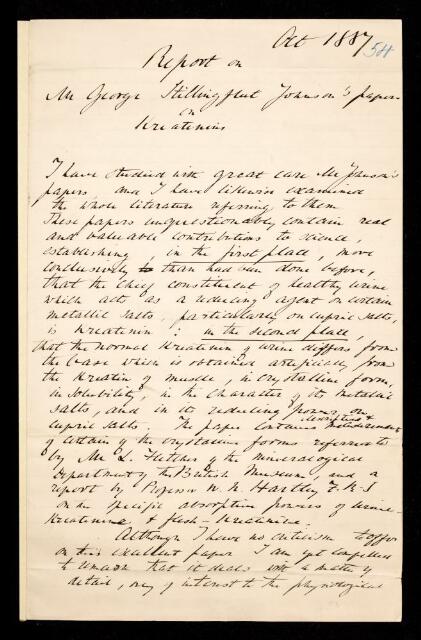 Oct 1887
54
Report on
Mr George Stillingfleet Johnson's paper
on
Kreatinins
I have studied with great care Mr Jonson's
papers, and I have likewise examined
the whole literature referring to them.
These papers unquestionably contain real
and valuable contributions to science,
establishing, in the first place, more
conclusively than had been done before,
that the chief constituent of healthy urine
which acts as a reducing agent on certain
metallic salts, particularly on cupric salts,
is Kreatinin: in the second place,
that the normal Kreatinin of urine differs from
the base which is obtained artificially from
the Kreatin of muscle, in crystalline form,
in solubility, in the character of its metallic
salts, and in its reducing power on
cupric salts. The paper contains descriptions & measurements
of certain of the crystalline forms referred to
by Mr L. Fletcher of the mineralogical
Department of the British Museum, and a
report by Professor W. N. Hartley F.R.S
on the specific absorption powers of urine-
Kreatinine & flesh-Kreatinine.
Although I have no criticism to offer
on this excellent paper I am yet compelled
to remark that it deals with a matter of
detail, only of interest to the physiological